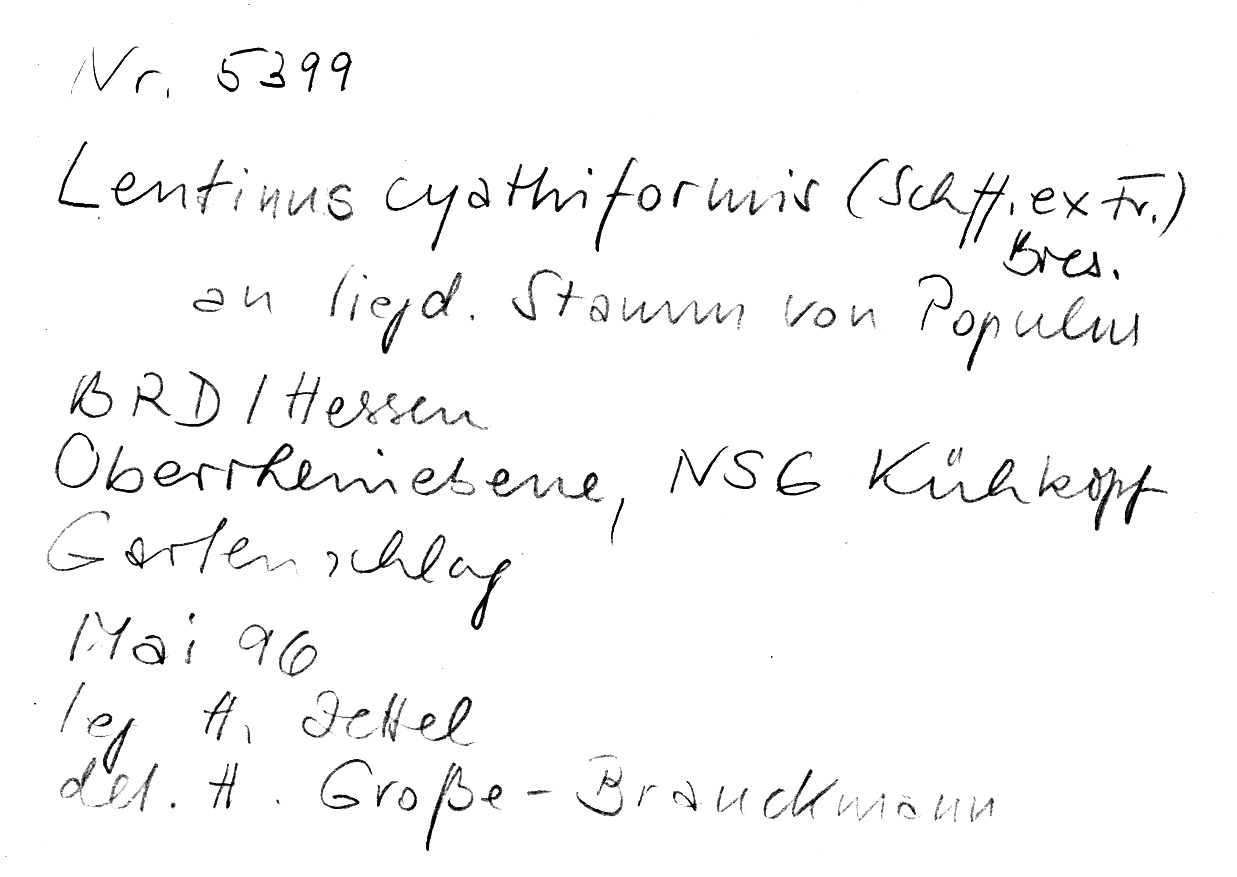 Nr. 5399
Lentinus cyathiformis (Schff. ex Fr.)
Bres.
an liegd. Stamm von Populus
BRD / Hessen
Oberrheinebene, NSG Kühkopf
Gartenschlag
Mai 96
leg H. Zettel
det. H. Große-Brauckmann